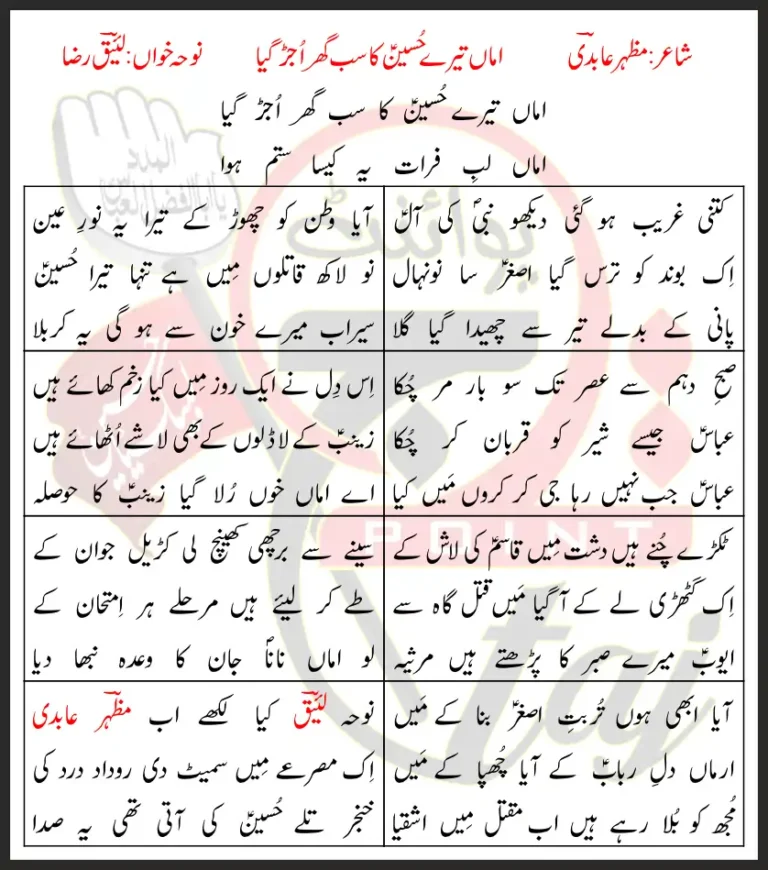 شاعر: مظہر عابدیؔ اماں تیرے حُسینؑ کا سب گھر اُجڑ گیا نوحہ خواں: لئیقؔ رضا
اماں تیرے حُسینؑ کا سب گھر اُجڑ گیا
اماں لبِ فرات یہ کیسا ستم ہوا
کتنی غریب ہو گئی دیکھو نبیؐ کی آلؑ
اِک بوند کو ترس گیا اصغرؑ سا نونہال
پانی کے بدلے تیر سے چھیدا گیا گلا
آیا وطن کو چھوڑ کے تیرا یہ نورِ عین
نو لاکھ قاتلوں مِیں ہے تنہا تیرا حُسینؑ
سیراب میرے خون سے ہو گی یہ کربلا
صبحِ دہم سے عصر تک سو بار مر چُکا
عباسؑ جیسے شیر کو قربان کر چُکا
عباسؑ جب نہیں رہا جی کر کروں مَیں کیا
اِس دِل نے ایک روز مِیں کیا زخم کھائے ہیں
زینبؑ کے لاڈلوں کے بھی لاشے اُٹھائے ہیں
اے اماں خوں رُلا گیا زینبؑ کا حوصلہ
ٹکڑے چُنے ہیں دشت مِیں قاسمؑ کی لاش کے
اِک گٹھڑی لے کے آ گیا مَیں قتل گاہ سے
ایوبؑ میرے صبر کا پڑھتے ہیں مرثیہ
سینے سے برچھی کھینچ لی کڑیل جوان کے
طے کر لیئے ہیں مرحلے ہر اِمتحان کے
لو اماں ناناؐ جان کا وعدہ نبھا دیا
آیا ابھی ہوں تُربتِ اصغرؑ بنا کے مَیں
ارماں دلِ ربابؑ کے آیا چُھپا کے مَیں
مُجھ کو بُلا رہے ہیں اب مقتل مِیں اشقیا
نوحہ لئیقؔ کیا لکھے اب مظہرؔ عابدی
اِک مصرعے مِیں سمیٹ دی روداد درد کی
خنجر تلے حُسینؑ کی آتی تھی یہ صدا
المدد
یا ابالفضل العباس
پوائنٹ
POINT
taj